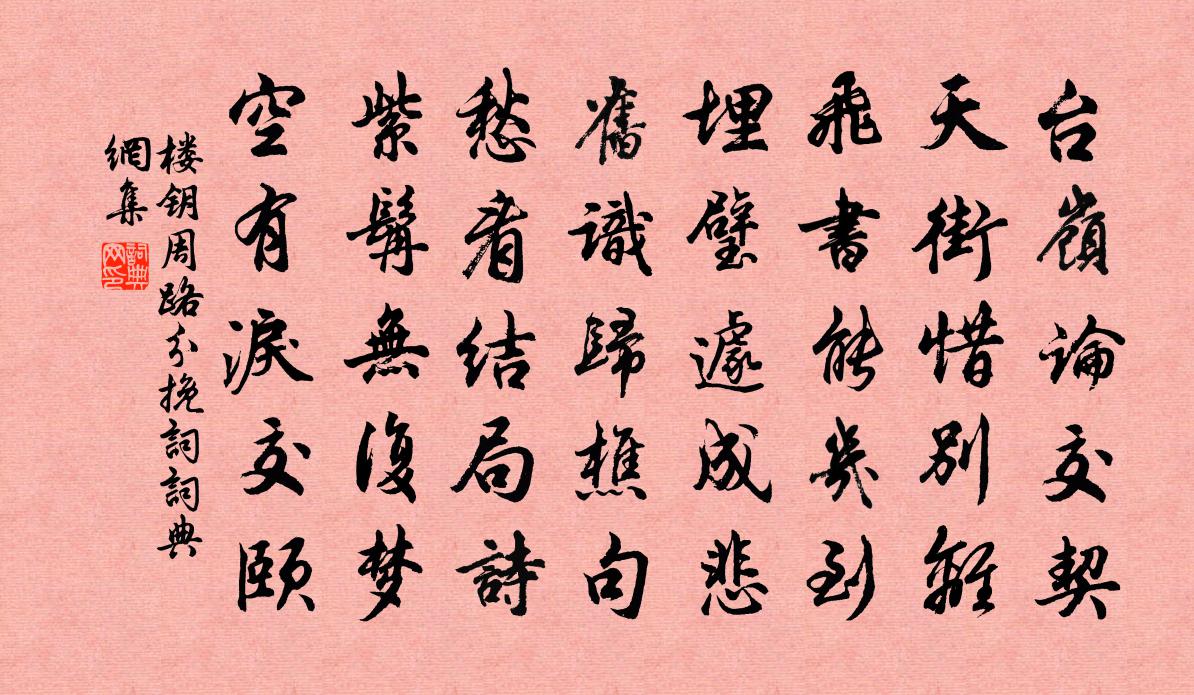 台嶺論交契
天街惜別離
飛書能幾到
埋璧遽成悲
舊識歸樵句
愁看結局詩
紫髯無復梦
空有淚交頤
楼钥周路分挽詞詞典
網集
詞典网印